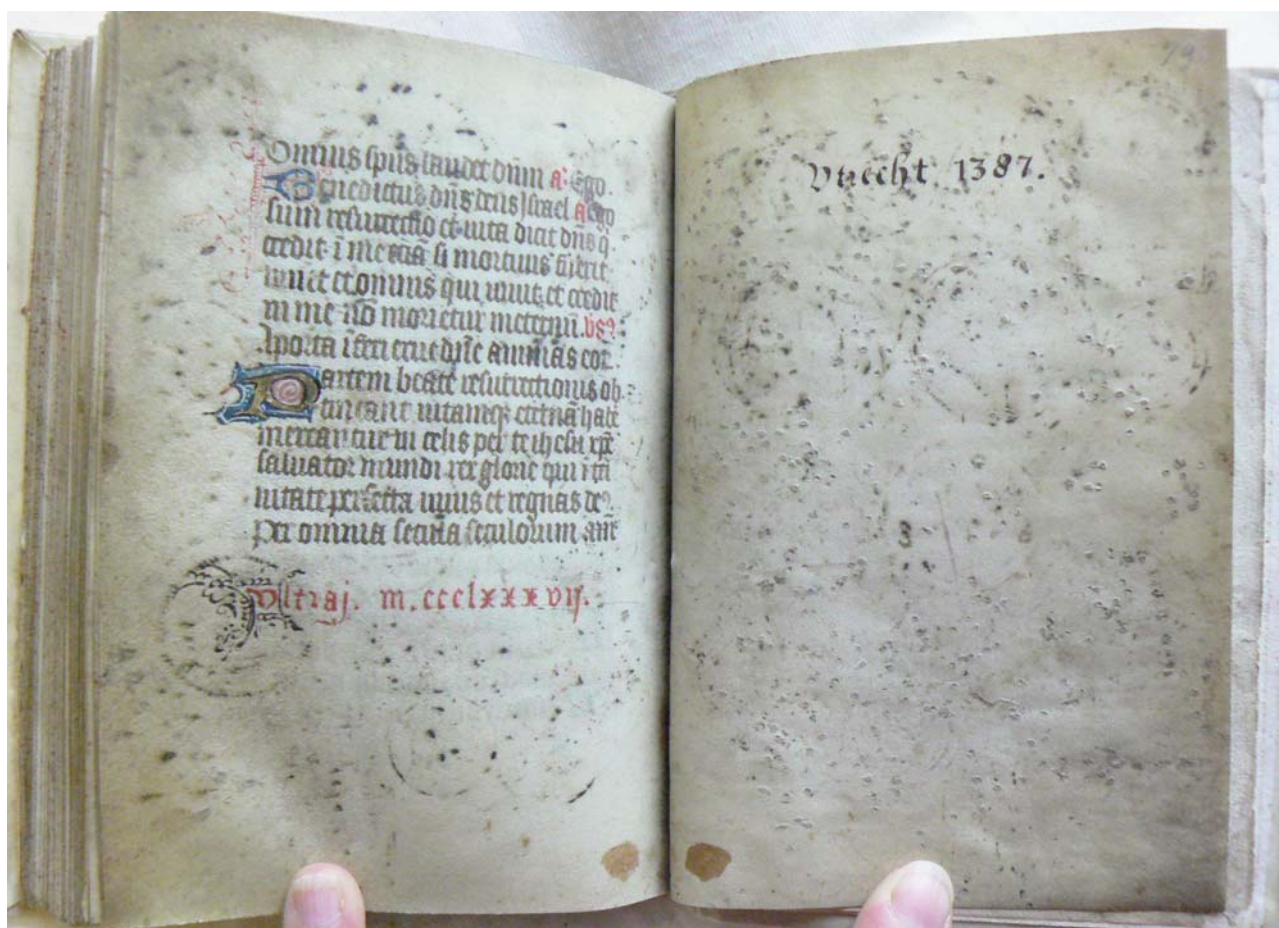 Omnis sp̄us laudet dn̄m a. Ego.
Benedictus dn̄s deus israel a Ego
sum resurrectio et uita dicit dn̄s q̄
credit ī me etiā si mortuus fu̅erit
uiuit et omnis qui uiuit et credit
in me nō morietur in
Aporta īferi erue dn̄e animas eor̄
Partem beate resurrectionis ob
tineant uitamq̨ eternā habe̅
mereantur in celis per te ihesu xp̄e
saluator mundi rex glorie qui ī tri
nitate perfecta uiuis et regnas de
Per omnia secula seculorum ame̅
Vltraj. m.ccclxxxvij.
79
Vtrecht 1387.